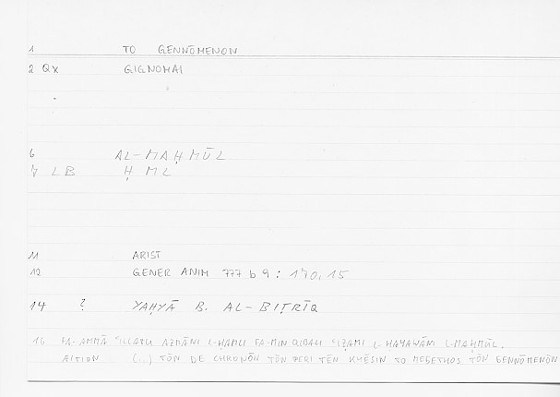 1 TO GENNŌMENON
2 Qx GIGNOMAI
6 AL-MAḤMŪL
7 LB ḤML
11 ARIST
12 GENER ANIM 777 b 9 : 170, 15
14 ? YAḤYĀ B. AL-BIṬRĪQ
16 FA-AMMĀ ʿILLATU AZMĀNI L-ḤAMLI FA-MIN QIBALI L-ḤAYAWĀNI L-MAḤMŪL.
AITION (...) TŌN DE CHRONŌN TŌN PERI TĒN KYĒSIN TO MEGETHOS TŌN GENNŌMENŌN